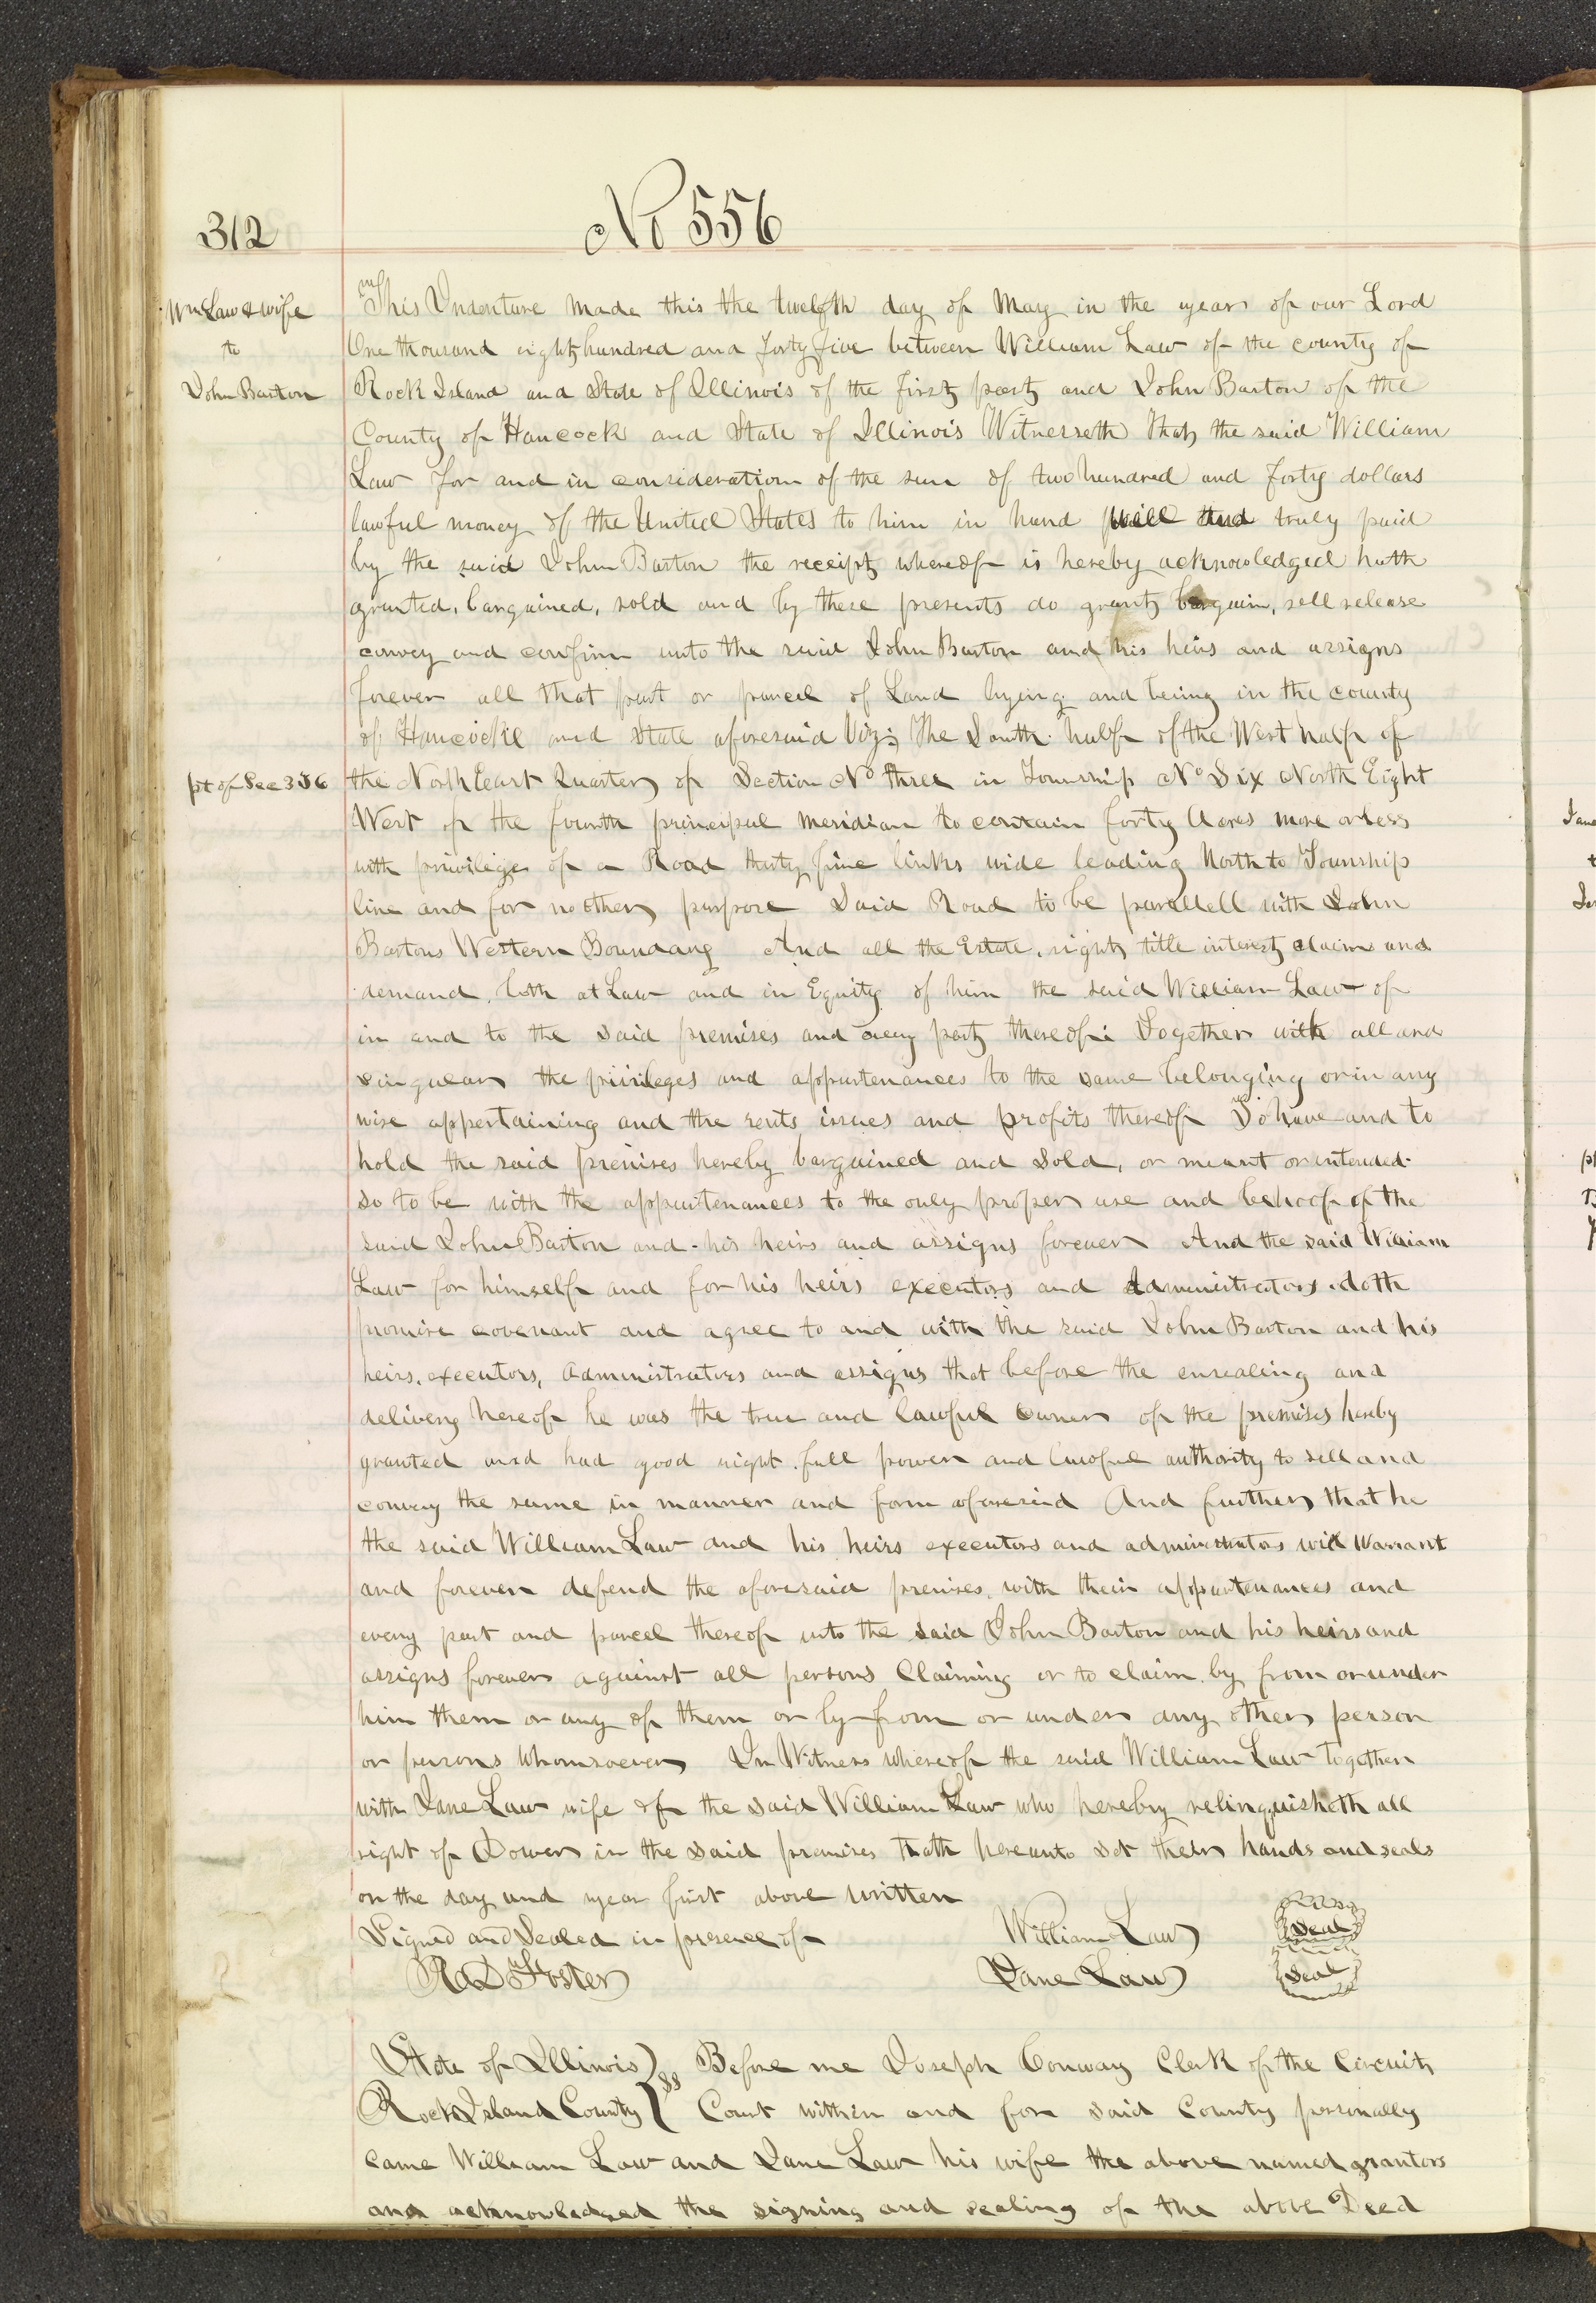 312
No 556
Wm Law & wife
to
John Barton
This Indenture made this the twelfth day of May in the year of our Lord
One thousand eight hundred and forty five between William Law of the county of
Rock Island and State of Illinois of the first part and John Barton of the
County of Hancock and State of Illinois Witnesseth That the said William
Law for and in consideration of the sum of two hundred and forty dollars
lawful money of the United States to him in hand well and truly paid
by the said John Barton the receipt whereof is hereby acknowledged hath
granted, bargained, sold and by these presents do grant bargain, sell release
convey and confirm unto the said John Barton and his heirs and assigns
forever all that part or parcel of Land lying and being in the county
of Hancock and State aforesaid Viz; The South half of the West half of
pt of Sec 3 J 6
the North East Quarter of Section No three in Township No Six North Eight
West of the fourth principal meridian to contain forty Acres more or less
with privilege of a Road thirty five links wide leading North to Township
line and for no other purpose Said Road to be parallell with John
Bartons Western Boundary And all the Estate, right title interest claim and
demand, both at Law and in Equity of him the said William Law of
in and to the said premises and every part thereof: Together with all and
singular the privileges and appurtenances to the same belonging or in any
wise appertaining and the rents issues and profits thereof To have and to
hold the said premises hereby bargained and Sold, or meant or intended
so to be with the appurtenances to the only proper use and behoof of the
said John Barton and his heirs and assigns forever And the said William
Law for himself and for his heirs executors and Administrators doth
promise covenant and agree to and with the said John Barton and his
heirs, executors, Administrators and assigns that before the ensealing and
delivery hereof he was the true and lawful owner of the premises hereby
granted and had good right full power and lawful authority to sell and
convey the same in manner and form aforesaid And further that he
the said William Law and his heirs executors and administrators will Warrant
and forever defend the aforesaid premises, with their appurtenances and
every part and parcel thereof unto the said John Barton and his heirs and
assigns forever against all persons Claiming or to claim by from or under
him them or any of them or by from or under any other person
or persons whomsoever In Witness whereof the said William Law together
with Jane Law wife of the said William Law who hereby relinquisheth all
right of Dower in the said premises hath hereunto set their hands and seals
on the day and year first above written
Signed and Sealed in presence of William Law Seal
R D Foster Jane Law Seal
State of Illinois } ss Before me Joseph Conway Clerk of the Circuit
Rock Island County } Court within and for said County personally
came William Law and Jane Law his wife the above named grantors
and acknowledged the signing and sealing of the above Deed